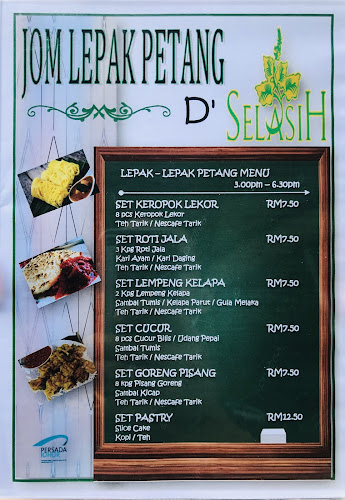 JOM LEPAK PETANG
D' SELASIH
LEPAK – LEPAK PETANG MENU
3.00pm – 6.30pm
SET KEROPOK LEKOR RM7.50
8 pcs Keropok Lekor
Teh Tarik / Nescafe Tarik
SET ROTI JALA RM7.50
3 Kpg Roti Jala
Kari Ayam / Kari Daging
Teh Tarik / Nescafe Tarik
SET LEMPENG KELAPA RM7.50
2 Kpg Lempeng Kelapa
Sambal Tumis / Kelapa Parut / Gula Melaka
Teh Tarik / Nescafe Tarik
SET CUCUR RM7.50
8 pcs Cucur Bilis / Udang Pepai
Sambal Tumis
Teh Tarik / Nescafe Tarik
SET GORENG PISANG RM7.50
8 kpg Pisang Goreng
Sambal Kicap
Teh Tarik / Nescafe Tarik
SET PASTRY RM12.50
Slice Cake
Kopi / Teh
PERSADA
JOHOR